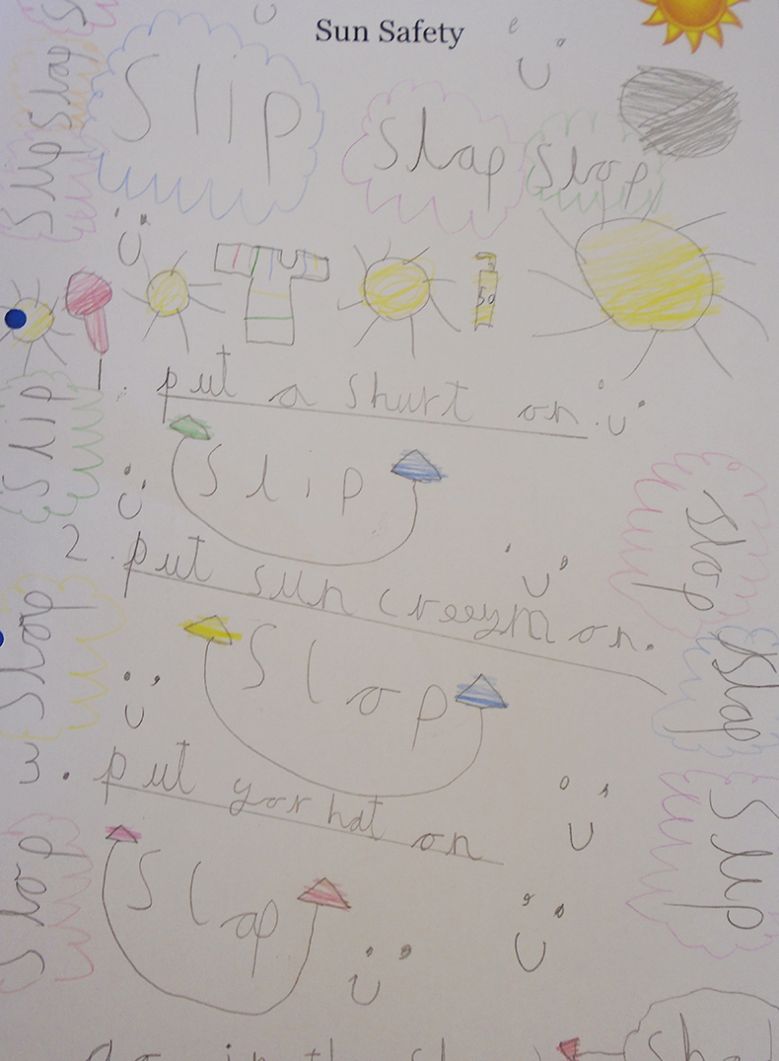 Sun Safety
Slip
Slap
Slop
Slip
Slap
50
1. put a shurt on.
Slip
Slip
Slop
2. put sun creeym on.
Slop
Slop
Slap
3. put yor hat on
Slip
Slop
Slap